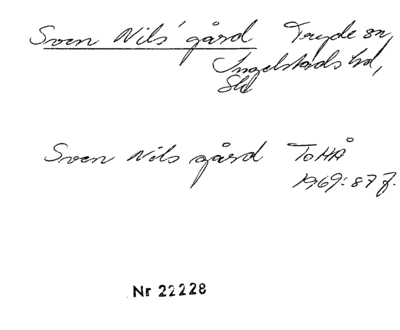 Sven Nils' gård Tryde sn,
Ingelstads hd,
Skå
Sven Nils gård ToHÅ
1969:87 f.
Nr 22228